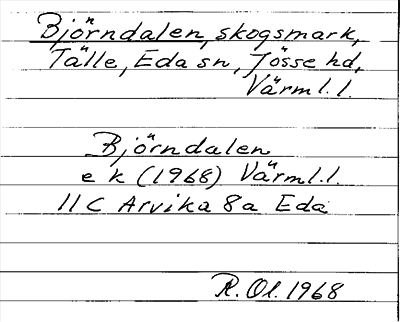 Björndalen, skogsmark,
Tälle, Eda sn, Jösse hd,
Värml.l.
Björndalen
e k (1968) Värml.l.
11C Arvika 8a Eda
R. Ol. 1968